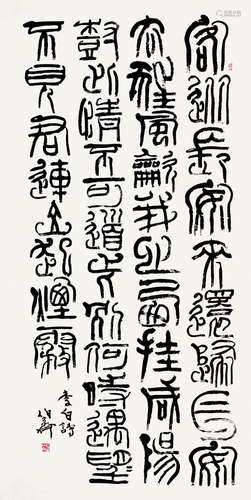 客從長安來還歸長安
去狂風龡我心西挂咸陽
樹此情不可道此別何時遇望
不見君連山起煙霧
李白詩